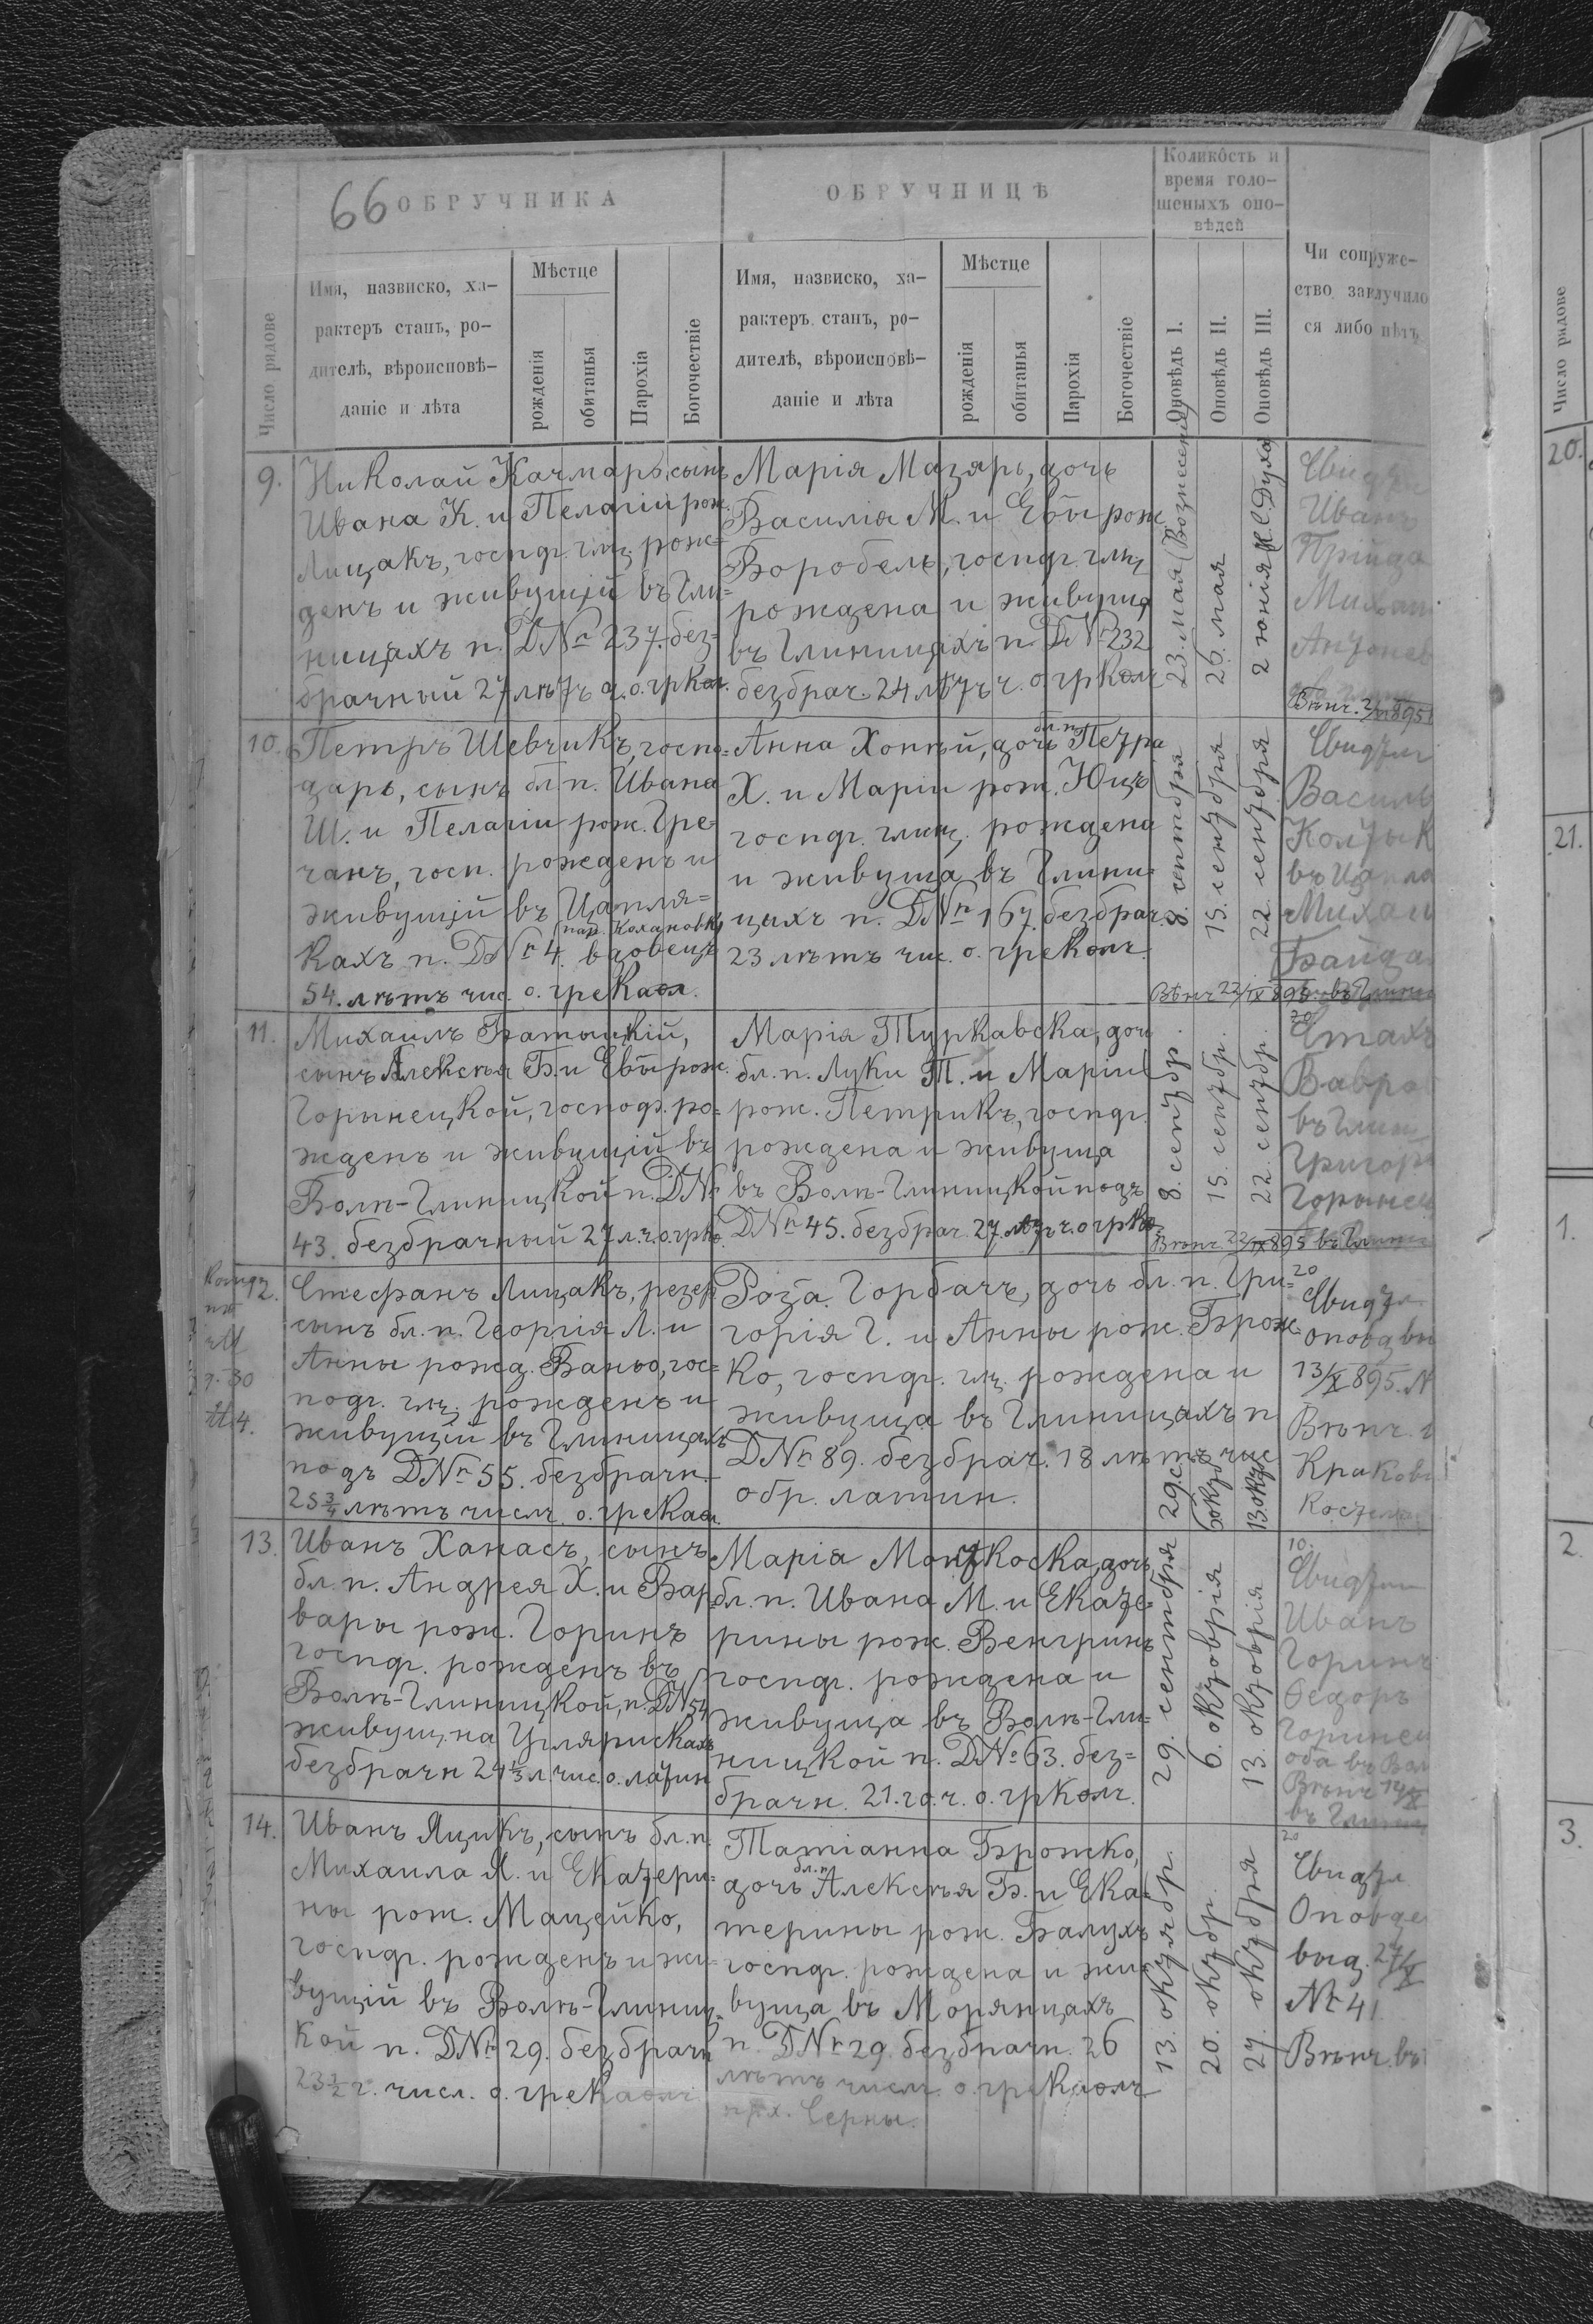 66 ОБРУЧНИКА
ОБРУЧНИЦѢ
Количо́сть и
время голо-
шеныхъ опо-
вѣдей
Число рядове
Имя, назвиско, ха-
рактеръ станъ, ро-
дителѣ, вѣроисповѣ-
даніе и лѣта
Мѣстце
рожденія
обитанья
Парохія
Богочествіе
Имя, назвиско, ха-
рактеръ станъ, ро-
дителѣ, вѣроисповѣ-
даніе и лѣта
Мѣстце
рожденія
обитанья
Парохія
Богочествіе
Оповѣдь I.
Оповѣдь II.
Оповѣдь III.
Чи супруже-
ство заключило
ся либо нѣтъ
9.
Николай Качмаръ, сынъ
Ивана К. и Пелагіи рож.
Лицакъ, госпдр. глц. рож-
денъ и живущій въ Гли-
ницахъ п. DNr 237. без-
брачный 27 лѣтъ ч. о. грком.
Марія Мазяръ, дочь
Василія М. и Евы рож.
Воробель, госпдр. глц
рождена и живуща
въ Глиницахъ п. DNr 232
безбрач. 24 лѣтъ ч. о. грком
23. мая (Вознесенія)
26. мая
2 юнія Н. С. Духа
Свидѣт
Иванъ
Прійда
Михаил
Антонев
Вѣнч. 2/VI 895
10.
Петръ Шевчикъ, госпо-
даръ, сынъ бл. п. Ивана
Ш. и Пелагіи рож. Гре-
чанъ, госп. рожденъ и
живущій въ Цапля-
пар. Кохановк
кахъ п. DNr 4. вдовецъ
54. лѣтъ чис. о. грекаол.
Анна Хоптій, дочь бл. п. Петра
Х. и Маріи рож. Юцъ
госпдр. глиц. рождена
и живуща въ Глини-
цахъ п. DNr 167. безбрач.
23 лѣтъ чис. о. греколч.
8. септбря
15. септбря
22. септбря
Свидѣт
Василь
Колтык
въ Цапла
Михаи
Байда
Вѣнч 22/IX 895 въ Глини
11.
Михаилъ Батыцкій,
сынъ Алексѣя Б. и Евы рож.
Горынецкой, господр. ро-
жденъ и живущій въ
Волѣ-Глиницкой п. DNr
43. безбрачный 27 л. ч. о. грко
Марія Туркавска, доч
бл. п. Луки Т. и Маріи
рож. Петрикъ, госпдр.
рождена и живуща
въ Волѣ-Глиницкой подъ
DNr 45. безбрач. 27 лѣтъ ч. о грко
8. септбр.
15. септбр.
22. септбр.
20
Стахъ
Вавро
въ Глин
Григор
Горынец
Вѣнч. 22/IX 895 въ Глини
12.
Стефанъ Лицакъ, резер
сынъ бл. п. Георгія Л. и
Анны рожд. Ваньо, гос-
подр. глц. рожденъ и
живущій въ Глиницахъ
подъ DNr 55. безбрачн.
25 3/4 лѣтъ числ. о. грекаол.
Роза Горбачъ, дочь бл. п. Гри-
горія Г. и Анны рож. Брож-
ко, госпдр. глц. рождена и
живуща въ Глиницахъ п
DNr 89. безбрач. 18 лѣтъ чис
обр. латин.
29 с.
6 октб
13. окт
20
Свидѣт
оповд вы
13/X 895. N
Вѣнч. в
Краков
Костел
13.
Иванъ Ханасъ, сынъ
бл. п. Андрея Х. и Вар-
вары рож. Горинъ
госпдр. рожденъ въ
Волѣ-Глиницкой, п. DN 54
живущ. на Цглярискахъ
безбрачн 24 1/3 л. чис. о. латин
Марія Монткоска, дочь
бл. п. Ивана М. и Екате-
рины рож. Венгринъ
госпдр. рождена и
живуща въ Волѣ-Гли-
ницкой п. DNo 63. без-
брачн. 21. го. ч. о. грколч.
29. септбря
6. октоврія
13. октоврія
10.
Свидѣтл
Иванъ
Горинъ
Федоръ
Горинец
оба въ Вол
Вѣнч 14/X
въ Глини
14.
Иванъ Яцикъ, сынъ бл. п.
Михаила Я. и Екатери-
ны рож. Мацейко,
госпдр. рожденъ и жи-
вущій въ Волѣ-Глиниц-
кой п. DNr 29. безбрачн
23 1/2 г. числ. о. грекаолч
Татіанна Брожко,
дочь бл. п. Алексѣя Б. и Ека-
терины рож. Балухъ
госпдр. рождена и жи-
вуща въ Моряницахъ
п. DNr 29. безбрачн. 26
лѣтъ числ. о. грекаолч
прх. Черны.
13. октябр.
20. октбр.
27. октбря
20
Свидѣт
Оповде
выд. 27/X
Nr 41
Вѣнч. въ
Число рядове
20.
21.
1.
2.
3.